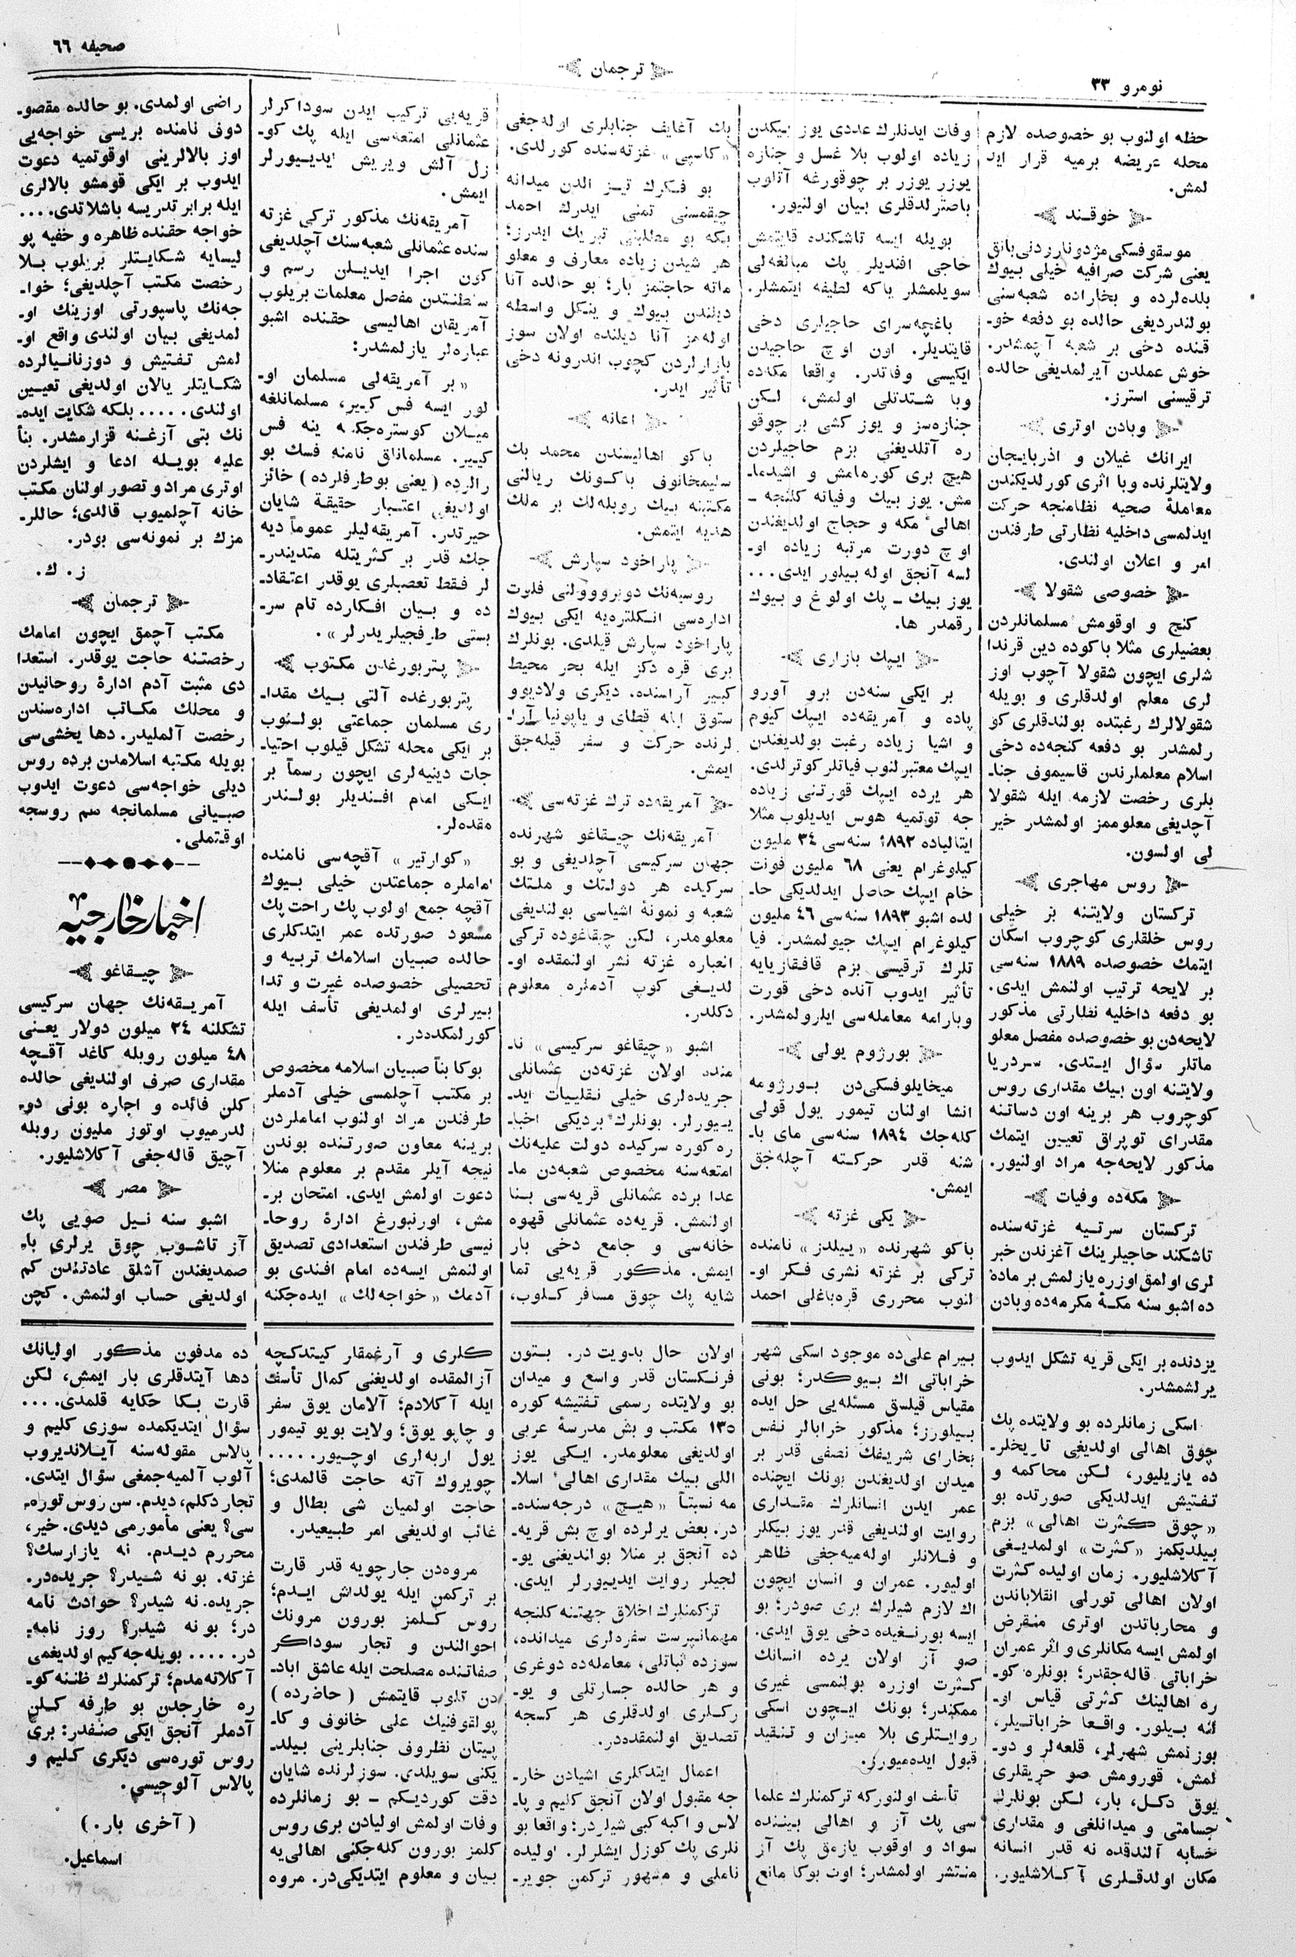 نومرو ٣٣
ترجمان
صحیفه ٦٦
حظه اولنوب بو خصوصده لازم
محله عریضه برمیه قرار اید
لمش.
خوقند
موسقوفسکی مژدونارزدنی بانق
یعنی شرکت صرافیه خیلی بیوك
بلده‌لرده و بخاراده شعبه‌سنی
بولندردیغی حالده بو دفعه خو۔
قنده دخی بر شعبه آچمشدر.
خوش عملدن آیرلمدیغی حالده
ترقیسنی استرز.
وبادن اوتری
ایرانك غیلان و اذربایجان
ولایتلرنده وبا اثری کورلدیکندن
معاملهٔ صحیه نظامنجه حرکت
ایدلمسی داخلیه نظارتی طرفندن
امر و اعلان اولندی.
خصوصی شقولا
کنج و اوقومش مسلمانلردن
بعضیلری مثلا باکوده دین قرندا
شلری ایچون شقولا آچوب اوز
لری معلم اولدقلری و بویله
شقولالرك رغبتده بولندقلری کو
رلمشدر بو دفعه کنجه‌ده دخی
اسلام معلملرندن قاسیموف جنا۔
بلری رخصت لازمه ایله شقولا
آچدیغی معلوممز اولمشدر خیر
لی اولسون.
روس مهاجری
ترکستان ولایتنه بز خیلی
روس خلقلری کوچروب اسکان
ایتمك خصوصده ١٨٨٩ سنه‌سی
بر لایحه ترتیب اولنمش ایدی.
بو دفعه داخلیه نظارتی مذکور
لایحه‌دن بو خصوصده مفصل معلو
ماتلر سؤال ایتدی. سردریا
ولایتنه اون بیك مقداری روس
کوچروب هر برینه اون دساتنه
مقدرای توپراق تعیین ایتمك
مذکور لایحه‌جه مراد اولنیور.
مکه‌ده وفیات
ترکستان سرتیه غزته‌سنده
تاشکند حاجیلرینك آغزندن خبر
لری اولمق اوزره یازلمش بر ماده
ده اشبو سنه مکهٔ مکرمه‌ده وبادن
وفات ایدنلرك عددی یوز بیکدن
زیاده اولوب بلا غسل و جنازه
یوزر یوزر بر چوقورغه آتلوب
باصترلدقلری بیان اولنیور.
بویله ایسه تاشکنده قایتمش
حاجی افندیلر پك مبالغه‌لی
سویلمشلر یاکه لطیفه ایتمشلر.
باغچه‌سرای حاجیلری دخی
قایتدیلر. اون اوچ حاجیدن
ایکیسی وفاتدر. واقعا مکه‌ده
وبا شدتلی اولمش، لکن
جنازه‌سز و یوز کشی بر چوقو
ره آتلدیغنی بزم حاجیلردن
هیچ بری کورمامش و اشیدما۔
مش. یوز بیك وفیانه کلنجه ـ
اهالیٔ مکه و حجاج اولدیغندن
اوچ دورت مرتبه زیاده او۔
لسه آنجق اوله بیلور ایدی...
یوز بیك ـ پك اولوغ و بیوك
رقمدر ها.
ایپك بازاری
بر ایکی سنه‌دن برو آورو
پاده و آمریقه‌ده ایپك کیوم
و اشیا زیاده رغبت بولدیغندن
ایپك معتبرلنوب فیاتلر کوترلدی.
هر یرده ایپك قورتنی زیاده
جه توتمیه هوس ایدیلوب مثلا
ایتالیاده ١٨٩٢ سنه‌سی ٣٤ ملیون
کیلوغرام یعنی ٦٨ ملیون فونت
خام ایپك حاصل ایدلدیکی حا۔
لده اشبو ١٨٩٣ سنه‌سی ٤٦ ملیون
کیلوغرام ایپك جیولمشدر. فیا
تلرك ترقیسی بزم قافقازیایه
تأثیر ایدوب آنده دخی قورت
وبارامه معامله‌سی ایلرولمشدر.
بورژوم یولی
میخایلوفسکی‌دن بورژومه
انشا اولنان تیمور یول قولی
کله‌جك ١٨٩٤ سنه‌سی مای با۔
شنه قدر حرکته آچله‌جق
ایمش.
یکی غزته
باکو شهرنده «ییلدز» نامنده
ترکی بر غزته نشری فکر او۔
لنوب محرری قره‌باغلی احمد
بك آغایف جنابلری اوله‌جغی
«کاسپی» غزته‌سنده کورلدی.
بو فکرك تیز الدن میدانه
چیقمسنی تمنی ایدرك احمد
بکه بو مطلبنی تبریك ایدرز؛
هر شیدن زیاده معارف و معلو
ماته حاجتمز بار؛ بو حالده آنا
دیلندن بیوك و ینکل واسطه
اوله‌مز آنا دیلنده اولان سوز
بازارلردن کچوب اندرونه دخی
تأثیر ایدر.
اعانه
باکو اهالیسندن محمد بك
سلیمخانوف باکونك ریالنی
مکتبنه بیك روبله‌لك بر ملك
هدیه ایتمش.
پاراخود سپارش
روسیه‌نك دوبرووولنی فلوت
اداره‌سی انکلتره‌یه ایکی بیوك
پاراخود سپارش قیلدی. بونلرك
بری قره دکز ایله بحر محیط
کبیر آراسنده، دیکری ولادیوو
ستوق ایله قطای و یاپونیا آرا۔
لرنده حرکت و سفر قیله‌جق
ایمش.
آمریقه‌ده ترك غزته‌سی
آمریقه‌نك چیقاغو شهرنده
جهان سرکیسی آچلدیغی و بو
سرکیده هر دولتك و ملتك
شعبه و نمونهٔ اشیاسی بولندیغی
معلومدر، لکن چیقاغوده ترکی
العباره غزته نشر اولنمقده او۔
لدیغی کوپ آدملره معلوم
دکلدر.
اشبو «چیقاغو سرکیسی» نا۔
منده اولان غزته‌دن عثمانلی
جریده‌لری خیلی نقلیات اید۔
ییورلر. بونلرك بردیکی اخبا۔
ره کوره سرکیده دولت علیه‌نك
امتعه‌سنه مخصوص شعبه‌دن ما۔
عدا برده عثمانلی قریه‌سی بنا
اولنمش. قریه‌ده عثمانلی قهوه
خانه‌سی و جامع دخی بار
ایمش. مذکور قریه‌یی تما
شایه پك چوق مسافر کلوب،
قریه‌یی ترکیب ایدن سوداکرلر
عثمانلی امتعه‌سی ایله پك کو۔
زل آلش ویریش ایدییورلر
ایمش.
آمریقه‌نك مذکور ترکی غزته
سنده عثمانلی شعبه‌سنك آچلدیغی
کون اجرا ایدیلن رسم و
سلطنتدن مفصل معلمات بریلوب
آمریقان اهالیسی حقنده اشبو
عباره‌لر یازلمشدر:
«بر آمریقه‌لی مسلمان او۔
لور ایسه فس کیر، مسلمانلغه
میلان کوستره‌جکه ینه فس
کییر. مسلمانلق نامنه فسك بو
رالرده (یعنی بوطرفلرده) حائز
اولدیغی اعتبار حقیقة شایان
حیرتدر. آمریقه‌لیلر عموماً دیه
جك قدر بر کثریتله متدیندر۔
لر فقط تعصبلری یوقدر اعتقاد۔
ده و بیان افکارده تام سر۔
بستی طرفجیلریدرلر».
پتربورغدن مکتوب
پتربورغده آلتی بیك مقدا۔
ری مسلمان جماعتی بولنوب
بر ایکی محله تشکل قیلوب احتیا۔
جات دینیه‌لری ایچون رسماً بر
ایکی امام افندیلر بولندر
مقده‌لر.
«کوارتیر» آقچه‌سی نامنده
اماملره جماعتدن خیلی بیوك
آقچه جمع اولوب پك راحت پك
مسعود صورتده عمر ایتدکلری
حالده صبیان اسلامك تربیه و
تحصیلی خصوصده غیرت و تدا
بیرلری اولمدیغی تأسف ایله
کورلمکده‌در.
بوکا بناً صبیان اسلامه مخصوص
بر مکتب آچلمسی خیلی آدملر
طرفندن مراد اولنوب اماملردن
برینه معاون صورتنده بوندن
نیجه آیلر مقدم بر معلوم منلا
دعوت اولمش ایدی. امتحان بر۔
مش، اورنبورغ ادارهٔ روحا۔
نیسی طرفندن استعدادی تصدیق
اولنمش ایسه‌ده امام افندی بو
آدمك «خواجه‌لك» ایده‌جکنه
راضی اولمدی. بو حالده مقصو۔
دوف نامنده بریسی خواجه‌یی
اوز بالالرینی اوقوتمیه دعوت
ایدوب بر ایکی قومشو بالالری
ایله برابر تدریسه باشلاتدی....
خواجه حقنده ظاهره و خفیه پو
لیسایه شکایتلر بریلوب بلا
رخصت مکتب آچلدیغی؛ خوا۔
جه‌نك پاسپورتی اوزینك او۔
لمدیغی بیان اولندی واقع او۔
لمش تفتیش و دوزنانیالرده
شکایتلر یالان اولدیغی تعیین
اولندی..... بلکه شکایت ایده۔
نك بتی آزغنه قزارمشدر. بناً
علیه بویله ادعا و ایشلردن
اوتری مراد و تصور اولنان مکتب
خانه آچلمیوب قالدی؛ حاللر۔
مزك بر نمونه‌سی بودر.
ز. ك.
ترجمان
مکتب آچمق ایچون امامك
رخصتنه حاجت یوقدر. استعدا
دی مثبت آدم ادارهٔ روحانیدن
و محلك مکاتب اداره‌سندن
رخصت آلملیدر. دها یخشی‌سی
بویله مکتبه اسلامدن برده روس
دیلی خواجه‌سی دعوت ایدوب
صبیانی مسلمانجه هم روسجه
اوقتملی.
اخبار خارجیه
چیقاغو
آمریقه‌نك جهان سرکیسی
تشکلنه ٢٤ میلون دولار یعنی
٤٨ میلون روبله کاغد آقچه
مقداری صرف اولندیغی حالده
کلن فائده و اجاره بونی دو۔
لدرمیوب اوتوز ملیون روبله
آچیق قاله‌جغی آکلاشلیور.
مصر
اشبو سنه نیل صویی پك
آز تاشوب چوق یرلری با۔
صمدیغندن آشلق عادتندن کم
اولدیغی حساب اولنمش. کچن
یزدنده بر ایکی قریه تشکل ایدوب
یرلشمشدر.
اسکی زمانلرده بو ولایتده پك
چوق اهالی اولدیغی تاریخلر۔
ده یازیلیور، لکن محاکمه و
تفتیش ایدلدیکی صورتده بو
«چوق کثرت اهالی» بزم
بیلدیکمز «کثرت» اولمدیغی
آکلاشلیور. زمان اولیده کثرت
اولان اهالی تورلی انقلاباتدن
و محارباتدن اوتری منقرض
اولمش ایسه مکانلری و اثر عمران
خراباتی قاله‌جقدر؛ بونلره کو۔
ره اهالینك کثرتی قیاس او۔
لنه بیلور. واقعا خراباتیلر،
بوزنمش شهرلر، قلعه‌لر و دو۔
لمش، قورومش صو حریقلری
یوق دکل، بار، لکن بونلرك
جسامتی و میدانلغی و مقداری
حسابه آلندقده نه قدر انسانه
مکان اولدقلری آکلاشلیور.
بیرام علی‌ده موجود اسکی شهر
خراباتی اك بیوکدر؛ بونی
مقیاس قیلسق مسئله‌یی حل ایده
بیلورز؛ مذکور خرابالر نفس
بخارای شریفك نصفی قدر بر
میدان اولدیغندن بونك ایچنده
عمر ایدن انسانلرك مقداری
روایت اولندیغی قدر یوز بیکلر
و فلانلر اوله‌میه‌جغی ظاهر
اولیور. عمران و انسان ایچون
اك لازم شیلرك بری صودر؛ بو
ایسه بورنغیده دخی یوق ایدی.
صو آز اولان یرده انسانك
کثرت اوزره بولنمسی غیری
ممکندر؛ بونك ایچون اسکی
روایتلری بلا میزان و تنقید
قبول ایده‌میورز.
تأسف اولنورکه ترکمنلرك علما
سی پك آز و اهالی بیننده
سواد و اوقوب یازمق پك آز
منتشر اولمشدر؛ اوت بوکا مانع
اولان حال بدویت در. بتون
فرنکستان قدر واسع و میدان
بو ولایتده رسمی تفتیشه کوره
١٣٥ مکتب و بش مدرسهٔ عربی
اولدیغی معلومدر. ایکی یوز
اللی بیك مقداری اهالیٔ اسلا۔
مه نسبتاً «هیچ» درجه‌سنده۔
در. بعض یرلرده اوچ بش قریه۔
ده آنجق بر منلا بولندیغنی یو۔
لجیلر روایت ایدییورلر ایدی.
ترکمنلرك اخلاق جهتنه کلنجه
مهمانپرست سفره‌لری میدانده،
سوزده ثباتلی، معامله‌ده دوغری
و هر حالده جسارتلی و یو۔
رکلری اولدقلری هر کسجه
تصدیق اولنمقده‌در.
اعمال ایتدکلری اشیادن خار۔
جه مقبول اولان آنجق کلیم و پا۔
لاس و اکبه کبی شیلردر؛ واقعا بو
نلری پك کوزل ایشلرلر. اولیده
ناملی و مشهور ترکمن جویر۔
کلری و آرغمقار کیتدکچه
آزالمقده اولدیغنی کمال تأسف
ایله آکلادم؛ آلامان یوق سفر
و چاپو یوق؛ ولایت بویو تیمور
یول اربه‌لری اوچیور.....
چویروك آته حاجت قالمدی؛
حاجت اولمیان شی بطال و
غائب اولدیغی امر طبیعیدر.
مروه‌دن چارجویه قدر قارت
بر ترکمن ایله یولداش ایدم؛
روس کلمز بورون مرونك
احوالندن و تجار سوداکر
صفاتنده مصلحت ایله عاشق اباد۔
دن کلوب قایتمش (حاضرده)
پولقوفنیك علی خانوف و کا۔
پیتان نظروف جنابلرینی بیلد۔
یکنی سویلدی. سوزلرنده شایان
دقت کوردیکم ـ بو زمانلرده
وفات اولمش اولیادن بری روس
کلمز بورون کله‌جکنی اهالی‌یه
بیان و معلوم ایتدیکی‌در. مروه
ده مدفون مذکور اولیانك
دها آیتدقلری بار ایمش، لکن
قارت بکا حکایه قلمدی....
سؤال ایتدیکمده سوزی کلیم و
پالاس مقوله‌سنه آیلاندیروب
آلوب آلمیه‌جمغی سؤال ایتدی.
تجار دکلم، دیدم. سن روس توره۔
سی؟ یعنی مأمورمی دیدی. خیر،
محررم دیدم. نه یازارسك؟
غزته. بو نه شیدر؟ جریده‌در.
جریده نه شیدر؟ حوادث نامه
در؛ بو نه شیدر؟ روز نامه۔
در..... بویله‌جه کیم اولدیغمی
آکلاته‌مدم؛ ترکمنلرك ظننه کو۔
ره خارجدن بو طرفه کلن
آدملر آنجق ایکی صنفدر: بری
روس توره‌سی دیکری کلیم و
پالاس آلوجیسی.
(آخری بار.)
اسماعیل.